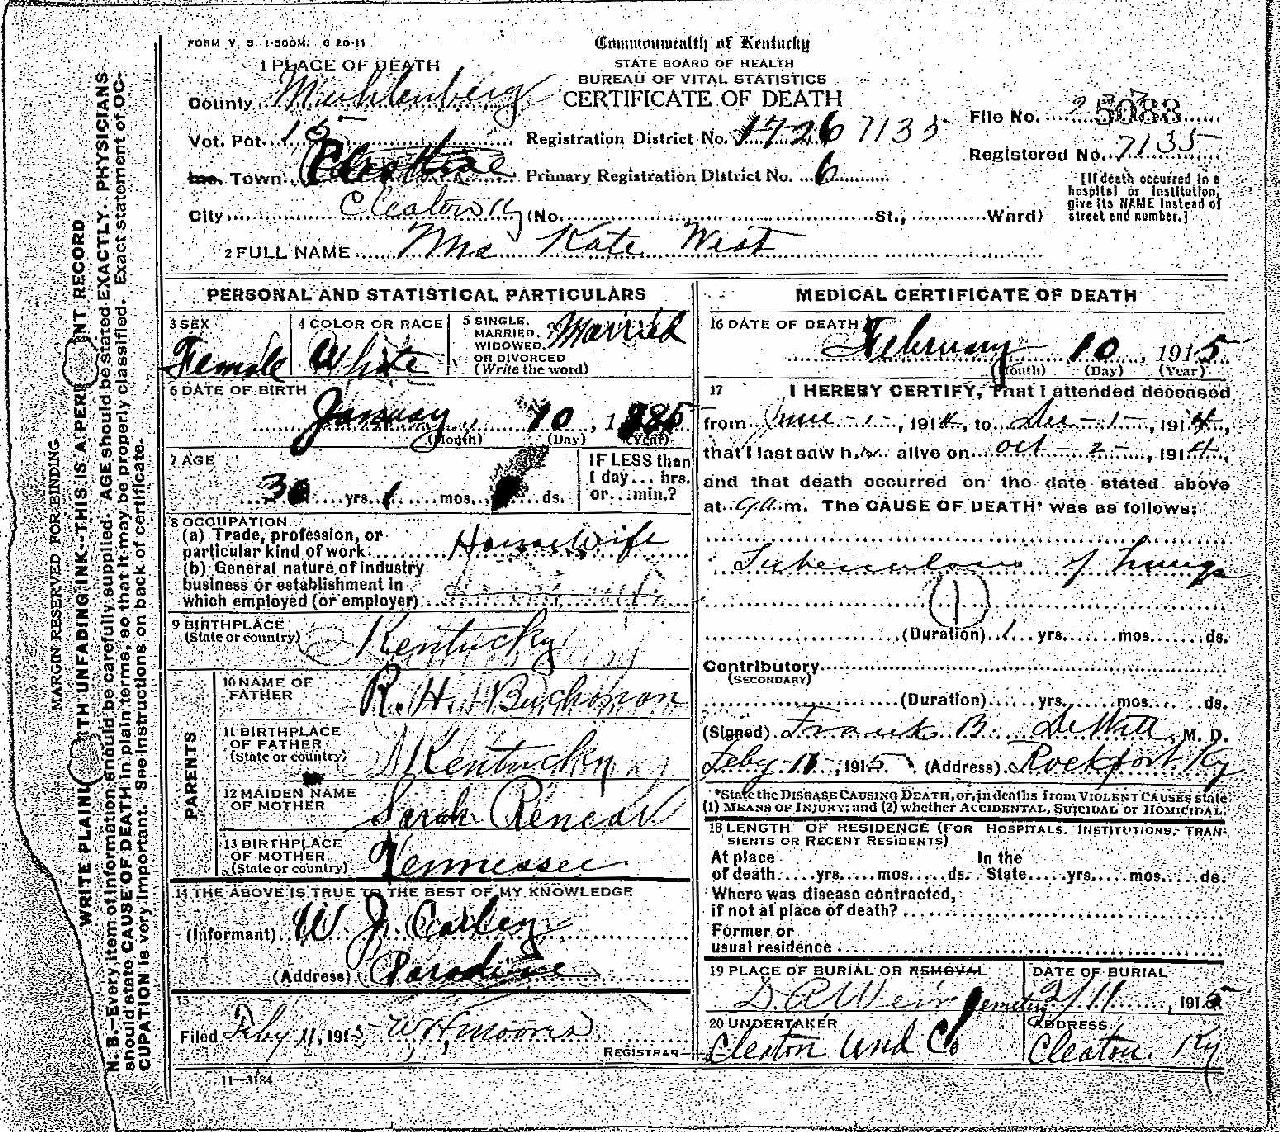 FORM V. S. 1-500M. 6 20-11
Commonwealth of Kentucky
STATE BOARD OF HEALTH
BUREAU OF VITAL STATISTICS
CERTIFICATE OF DEATH
1 PLACE OF DEATH
County Muhlenberg
Vot. Pct. 15
Inc. Town
City Cleaton Ky (No. St., Ward)
Registration District No. 1726 7135
Primary Registration District No. 6
File No. 5088
Registered No. 7135
[If death occurred in a
hospital or institution,
give its NAME instead of
street and number.]
2 FULL NAME Mrs Kate West
PERSONAL AND STATISTICAL PARTICULARS
3 SEX
Female
4 COLOR OR RACE
White
5 SINGLE,
MARRIED,
WIDOWED,
OR DIVORCED
(Write the word)
Married
6 DATE OF BIRTH
January 10, 1885
(Month) (Day) (Year)
7 AGE
30 yrs. 1 mos. ds.
IF LESS than
1 day... hrs.
or...min.?
8 OCCUPATION
(a) Trade, profession, or
particular kind of work House Wife
(b) General nature of industry
business or establishment in
which employed (or employer)
9 BIRTHPLACE
(State or country)
Kentucky
PARENTS
10 NAME OF
FATHER
R. H. Buchonon
11 BIRTHPLACE
OF FATHER
(State or country)
Kentucky
12 MAIDEN NAME
OF MOTHER
Sarah
13 BIRTHPLACE
OF MOTHER
(State or country)
Tennessee
14 THE ABOVE IS TRUE TO THE BEST OF MY KNOWLEDGE
(Informant) W. J.
(Address) Paradise
15
Filed Feby 11, 1915 W H Moores
REGISTRAR
11-3184
MEDICAL CERTIFICATE OF DEATH
16 DATE OF DEATH
February 10, 1915
(Month) (Day) (Year)
17 I HEREBY CERTIFY, That I attended deceased
from June 1, 1914, to Dec 1, 1914,
that I last saw her alive on Oct 2, 1914,
and that death occurred on the date stated above
at 9 a.m. The CAUSE OF DEATH* was as follows:
Tuberculosis of Lungs
(Duration) 1 yrs. mos. ds.
Contributory
(SECONDARY)
(Duration) yrs. mos. ds.
(Signed) Frank B. DeWitt M. D.
Feby 11, 1915 (Address) Rockport Ky
*State the DISEASE CAUSING DEATH, or, in deaths from VIOLENT CAUSES state
(1) MEANS OF INJURY; and (2) whether ACCIDENTAL, SUICIDAL or HOMICIDAL
18 LENGTH OF RESIDENCE (FOR HOSPITALS, INSTITUTIONS, TRAN-
SIENTS OR RECENT RESIDENTS)
At place In the
of death yrs. mos. ds. State yrs. mos. ds.
Where was disease contracted,
if not at place of death?
Former or
usual residence
19 PLACE OF BURIAL OR REMOVAL
D. A. Weir Cemetery
DATE OF BURIAL
2/11, 1915
20 UNDERTAKER
Cleaton Und Co
ADDRESS
Cleaton Ky
MARGIN RESERVED FOR BINDING
WRITE PLAINLY WITH UNFADING INK--THIS IS A PERMANENT RECORD
N. B.--Every item of information should be carefully supplied. AGE should be stated EXACTLY. PHYSICIANS
should state CAUSE OF DEATH in plain terms, so that it may be properly classified. Exact statement of OC-
CUPATION is very important. See instructions on back of certificate.